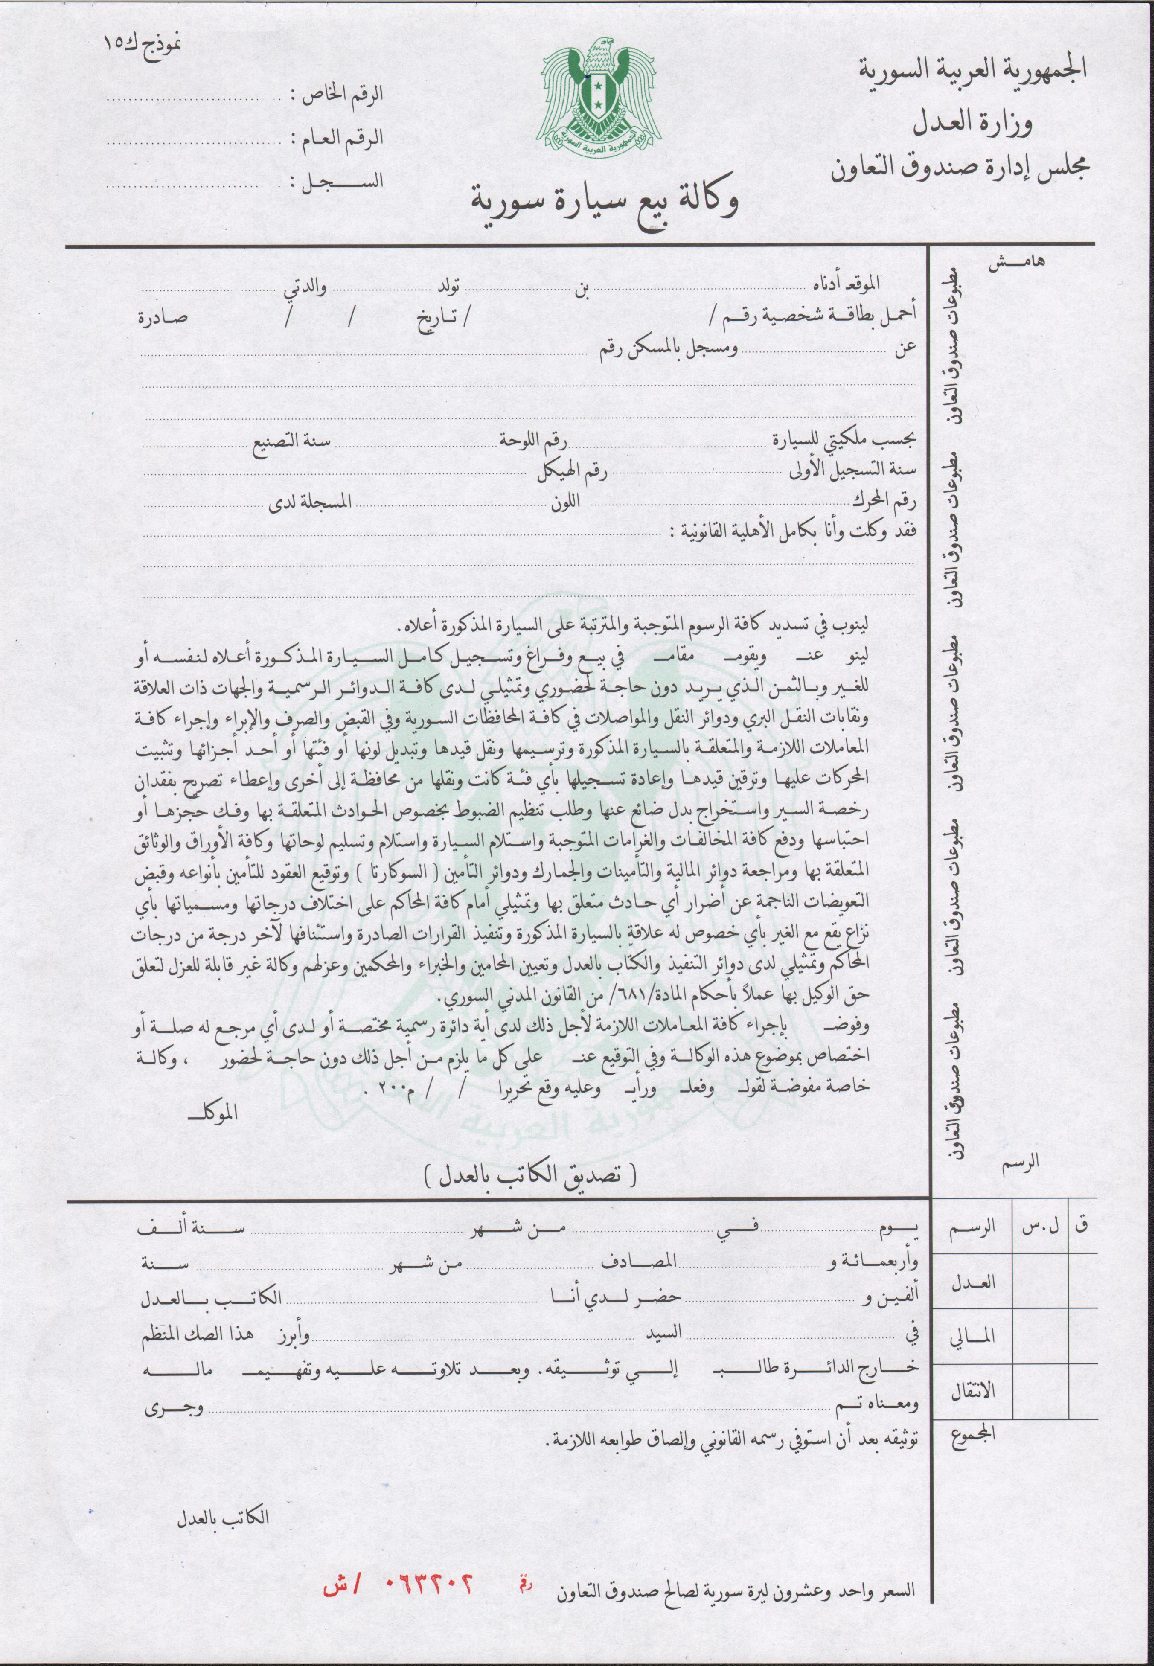 الجمهورية العربية السورية
وزارة العدل
مجلس إدارة صندوق التعاون
نموذج ك١٥
الرقم الخاص :
الرقم العام :
السجل :
الجمهورية العربية السورية
وكالة بيع سيارة سورية
هامش
مطبوعات صندوق التعاون
مطبوعات صندوق التعاون
مطبوعات صندوق التعاون
مطبوعات صندوق التعاون
مطبوعات صندوق التعاون
الموقع أدناه بن تولد والدتي
أحمل بطاقة شخصية رقم / / تاريخ / / صادرة
عن ومسجل بالمسكن رقم
بحسب ملكيتي للسيارة رقم اللوحة سنة التصنيع
سنة التسجيل الأولى رقم الهيكل
رقم المحرك اللون المسجلة لدى
فقد وكلت وأنا بكامل الأهلية القانونية :
لينوب في تسديد كافة الرسوم المتوجبة والمترتبة على السيارة المذكورة أعلاه.
لينو عنـ ويقومـ مقامـ في بيع وفراغ وتسجيل كامل السيارة المذكورة أعلاه لنفسه أو
للغير وبالثمن الذي يريد دون حاجة لحضوري وتمثيلي لدى كافة الدوائر الرسمية والجهات ذات العلاقة
ونقابات النقل البري ودوائر النقل والمواصلات في كافة المحافظات السورية وفي القبض والصرف والإبراء وإجراء كافة
المعاملات اللازمة والمتعلقة بالسيارة المذكورة وترسيمها ونقل قيدها وتبديل لونها أو فئتها أو أحد أجزائها وتثبيت
المحركات عليها وترقين قيدها وإعادة تسجيلها بأي فئة كانت ونقلها من محافظة إلى أخرى وإعطاء تصريح بفقدان
رخصة السير واستخراج بدل ضائع عنها وطلب تنظيم الضبوط بخصوص الحوادث المتعلقة بها وفك حجزها أو
احتباسها ودفع كافة المخالفات والغرامات المتوجبة واستلام السيارة واستلام وتسليم لوحاتها وكافة الأوراق والوثائق
المتعلقة بها ومراجعة دوائر المالية والتأمينات والجمارك ودوائر التأمين ( السوكارتا ) وتوقيع العقود للتأمين بأنواعه وقبض
التعويضات الناجمة عن أضرار أي حادث متعلق بها وتمثيلي أمام كافة المحاكم على اختلاف درجاتها ومسمياتها بأي
نزاع يقع مع الغير بأي خصوص له علاقة بالسيارة المذكورة وتنفيذ القرارات الصادرة واستئنافها لآخر درجة من درجات
المحاكم وتمثيلي لدى دوائر التنفيذ والكتاب بالعدل وتعيين المحامين والخبراء والمحكمين وعزلهم وكالة غير قابلة للعزل لتعلق
حق الوكيل بها عملاً بأحكام المادة/٦٨١/ من القانون المدني السوري.
وفوضـ بإجراء كافة المعاملات اللازمة لأجل ذلك لدى أية دائرة رسمية مختصة أو لدى أي مرجع له صلة أو
اختصاص بموضوع هذه الوكالة وفي التوقيع عنـ على كل ما يلزم من أجل ذلك دون حاجة لحضور ، وكالة
خاصة مفوضة لقولـ وفعلـ ورأيـ وعليه وقع تحريرا / / م٢٠٠ .
الموكلـ
( تصديق الكاتب بالعدل )
يوم في من شهر سنة ألف
وأربعمائة و المصادف من شهر سنة
ألفين و حضر لدي أنا الكاتب بالعدل
في السيد وأبرز هذا الصك المنظم
خارج الدائرة طالبـ إلي توثيقه. وبعد تلاوته عليه وتفهيمـ ماله
ومعناه تم وجرى
توثيقه بعد أن استوفي رسمه القانوني وإلصاق طوابعه اللازمة.
الكاتب بالعدل
الرسم
الرسم ل.س ق
العدل
المالي
الانتقال
المجموع
السعر واحد وعشرون ليرة سورية لصالح صندوق التعاون رقم ٠٦٣٢٠٢ /ش